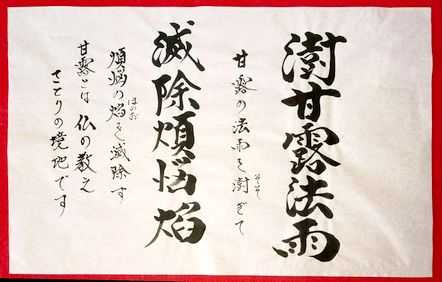 澍甘露法雨
甘露の法雨を澍ぎて
そそ
滅除煩悩焰
煩悩の焰を滅除す
ほのお
甘露とは仏の教え
さとりの境地です